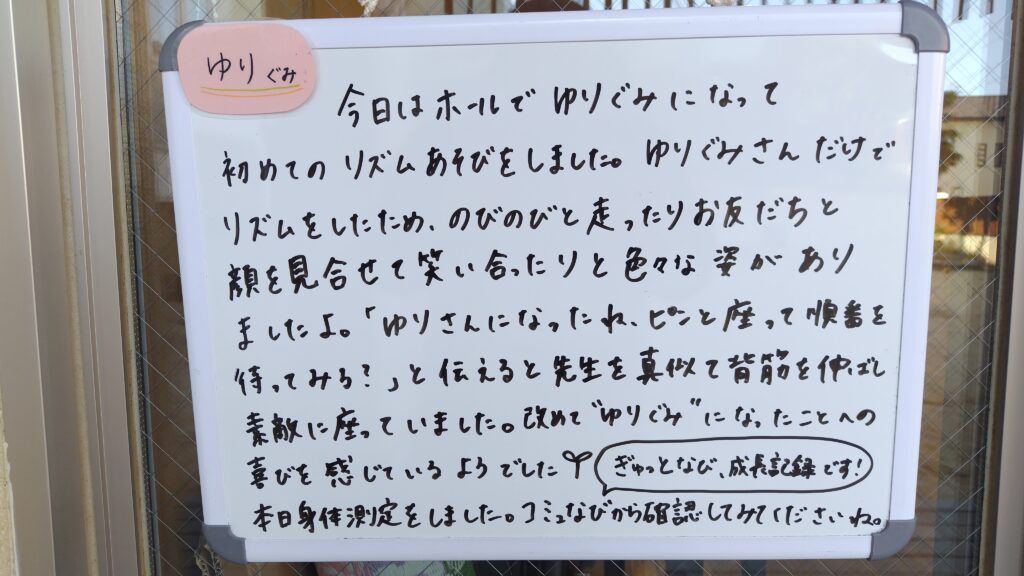 ゆりぐみ
今日はホールでゆりぐみになって
初めてのリズムあそびをしました。ゆりぐみさんだけで
リズムをしたため、のびのびと走ったりお友だちと
顔を見合せて笑い合ったりと色々な姿があり
ましたよ。「ゆりさんになったね、ピンと座って順番を
待ってみる?」と伝えると先生を真似て背筋を伸ばし
素敵に座っていました。改めて"ゆりぐみ"になったことへの
喜びを感じているようでした
ぎゅっとなび、成長記録です!
本日身体測定をしました。コミュなびから確認してみてくださいね。